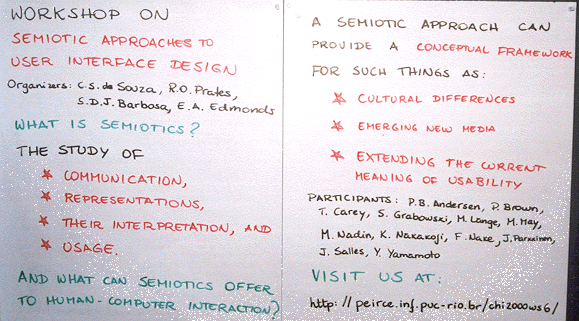 WORKSHOP ON
SEMIOTIC APPROACHES TO
USER INTERFACE DESIGN
Organizers: C.S. de Souza, R.O. Prates,
S.D.J. Barbosa, E.A. Edmonds
WHAT IS SEMIOTICS?
THE STUDY OF
COMMUNICATION,
REPRESENTATIONS,
THEIR INTERPRETATION, AND
USAGE.
AND WHAT CAN SEMIOTICS OFFER
TO HUMAN-COMPUTER INTERACTION?
A SEMIOTIC APPROACH CAN
PROVIDE A CONCEPTUAL FRAMEWORK
FOR SUCH THINGS AS:
CULTURAL DIFFERENCES
EMERGING NEW MEDIA
EXTENDING THE CURRENT
MEANING OF USABILITY
PARTICIPANTS: P.B. Andersen, P. Brown,
T. Carey, S. Grabowski, M. Lange, M. May,
M. Nadin, K. Nakakoji, F. Nake, J. Parkkinen,
J. Salles, Y. Yamamoto
VISIT US AT:
http://peirce.inf.puc-rio.br/chi2000ws6/